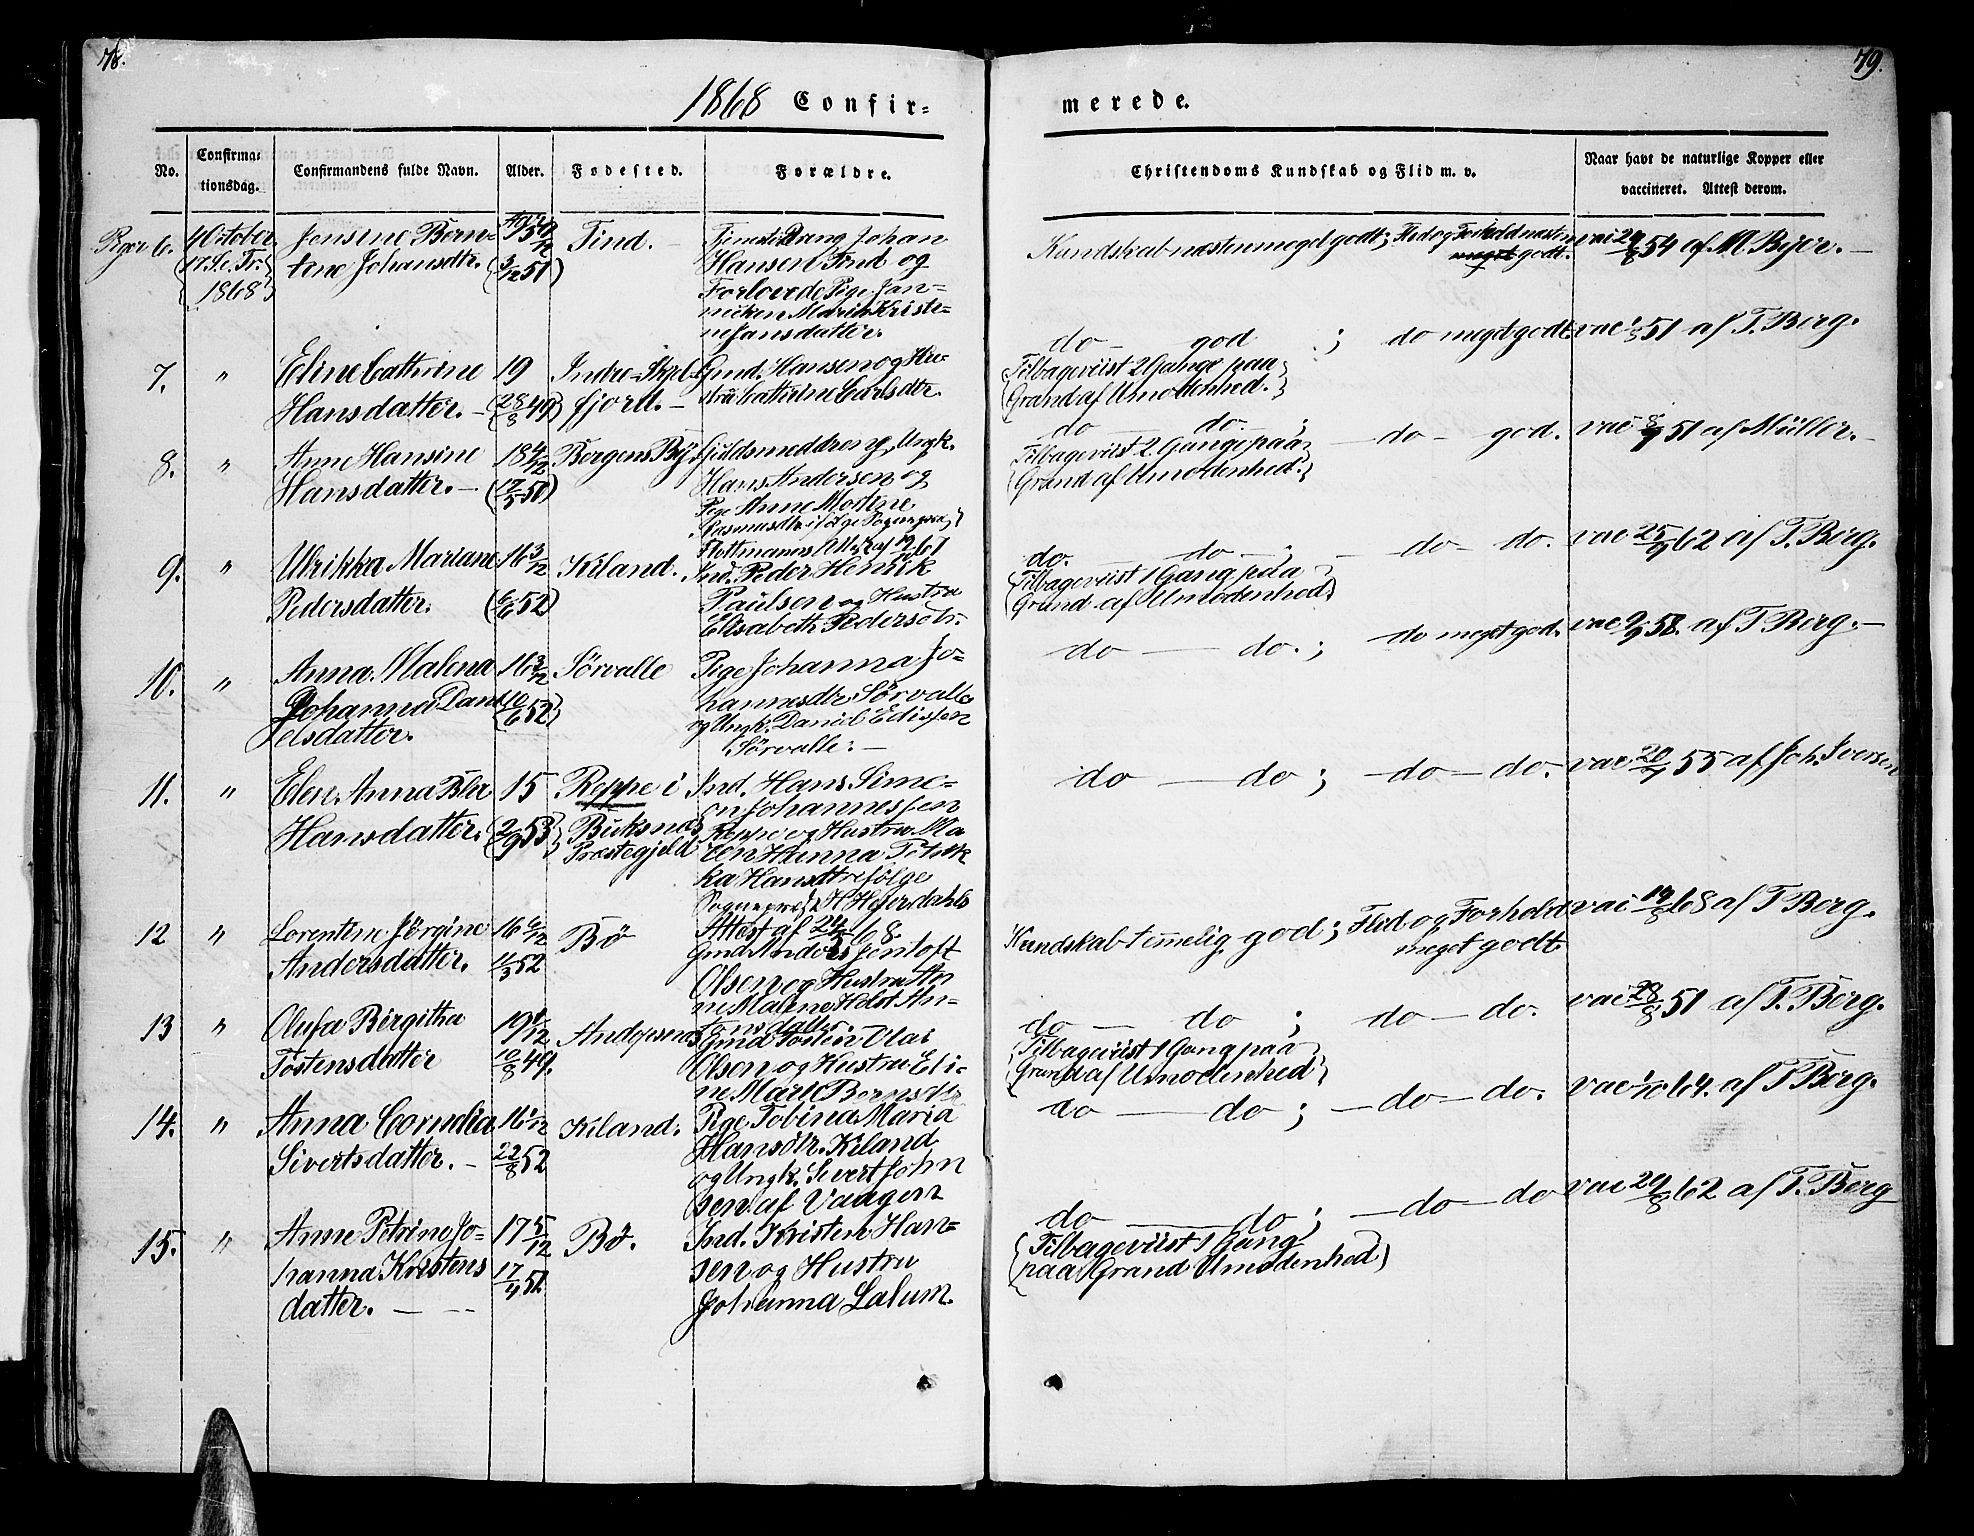 78.
79.
1868 Confir=
merede.
No.
Confirma=
tionsdag.
Confirmandens fulde Navn.
Alder.
Fødested.
Forældre.
Christendoms Kundskab og Flid m. v.
Naar havt de naturlige Kopper eller
vaccineret. Attest derom.
Piger 6.
4 October
17 S. e. Tr.
1868
Jensine Bern=
tine Johansdtr.
(3/12 51)
Tind.
Johan
Hansen Tind og
Forlovede Pige Jan=
nicken Marik Kriste=
ne Jansdatter.
Kundskab næsten meget godt; Flid og Forhold næsten
meget godt.
vac 54 af M. Byer.
7.
"
Eline Cathrine
Hansdatter.
19
(28/8 49)
Indre-Skjel-
fjord.
Gmd. Hansen og Hu=
stru Cathrine Carlsdtr.
do god ; do meget godt.
Tilbageviist 2 Gange paa
Grund af Umodenhed.
vac 51 af T. Berg.
8.
"
Anne Hansine
Hansdatter.
18 4/12
(17/5 50)
Bergens By.
Guldsmeddreng, Ungk.
Hans Andersen og
Pige Anne Mortine
Rasmusdtr. ifølge Sognepræst
do do. ; do god.
Tilbageviist 2 Gange paa
Grund af Umodenhed.
vac 8/9 51 af Müller.
9.
"
Ulrikka Mariane
Pedersdatter.
16 3/12
(6/6 52)
Kiland.
Ind. Peder Henrik
Paulsen og Hustru
Elisabeth Pedersdtr.
do. do ; do do.
Tilbageviist 1 Gang paa
Grund af Umodenhed.
vac 25/9 62 af T. Berg.
10.
"
Anna Malena
Johanna Dani
elsdatter.
16 3/12
(10/6 52)
Sørvalle
Pige Johanna Jo=
hannesdtr. Sørvalle
og Ungk. Daniel Edissen
Sørvalle.
do do. ; do meget god.
vac 9/9 58 af T. Berg.
11.
"
Elen Anna
Hansdatter.
15
(2/9 53)
Reppe i
Buksnæs
Præstegjeld
Ind. Hans Sime=
on Johannessen
Reppe og Hustru Ma
ren Hanna Petrik
ka Hansdtr ifølge
Sognepræst H. Heierdahls
Attest af 24/5 68.
do do ; do do.
vac 20/7 55 af Joh. Iversen
12
"
Lorentine Jørgine
Andersdatter.
16 6/12
11/3 52
Bø
Gmd Anders Gentoft
Olsen og Hustru An
ne Malene Holst An=
tonsdatter.
Kundskab temmelig god; Flid og Forhold
meget godt
vac 19/8 68 af T Berg.
13
"
Olufa Birgitha
Tostensdatter
19 1/12
10/8 49.
Andopsnes
Gmd Tosten Olai
Olsen og Hustru Eli=
ne Marie Berntsdtr
do do ; do do.
Tilbageviist 1 Gang paa
Grund af Umodenhed
vac 28/8 51 af T. Berg.
14.
"
Anna Cornelia
Sivertsdatter.
16 1/12
22/8 52
Kiland.
Pige Tobina Maria
Hansdtr. Kiland
og Ungk. Sivert John
sen af Vaagen
do do ; do do.
vac 1/10 64 af T Berg.
15.
"
Anne Petrine Jo=
hanna Kristens
datter.
17 5/12
17/4 51
Bø.
Ind. Kristen Han=
sen og Hustru
Johanna Lalum.
do do ; do do
Tilbageviist 1 Gang
paa Grund Umodenhed
vac 29/8 62 af T. Berg